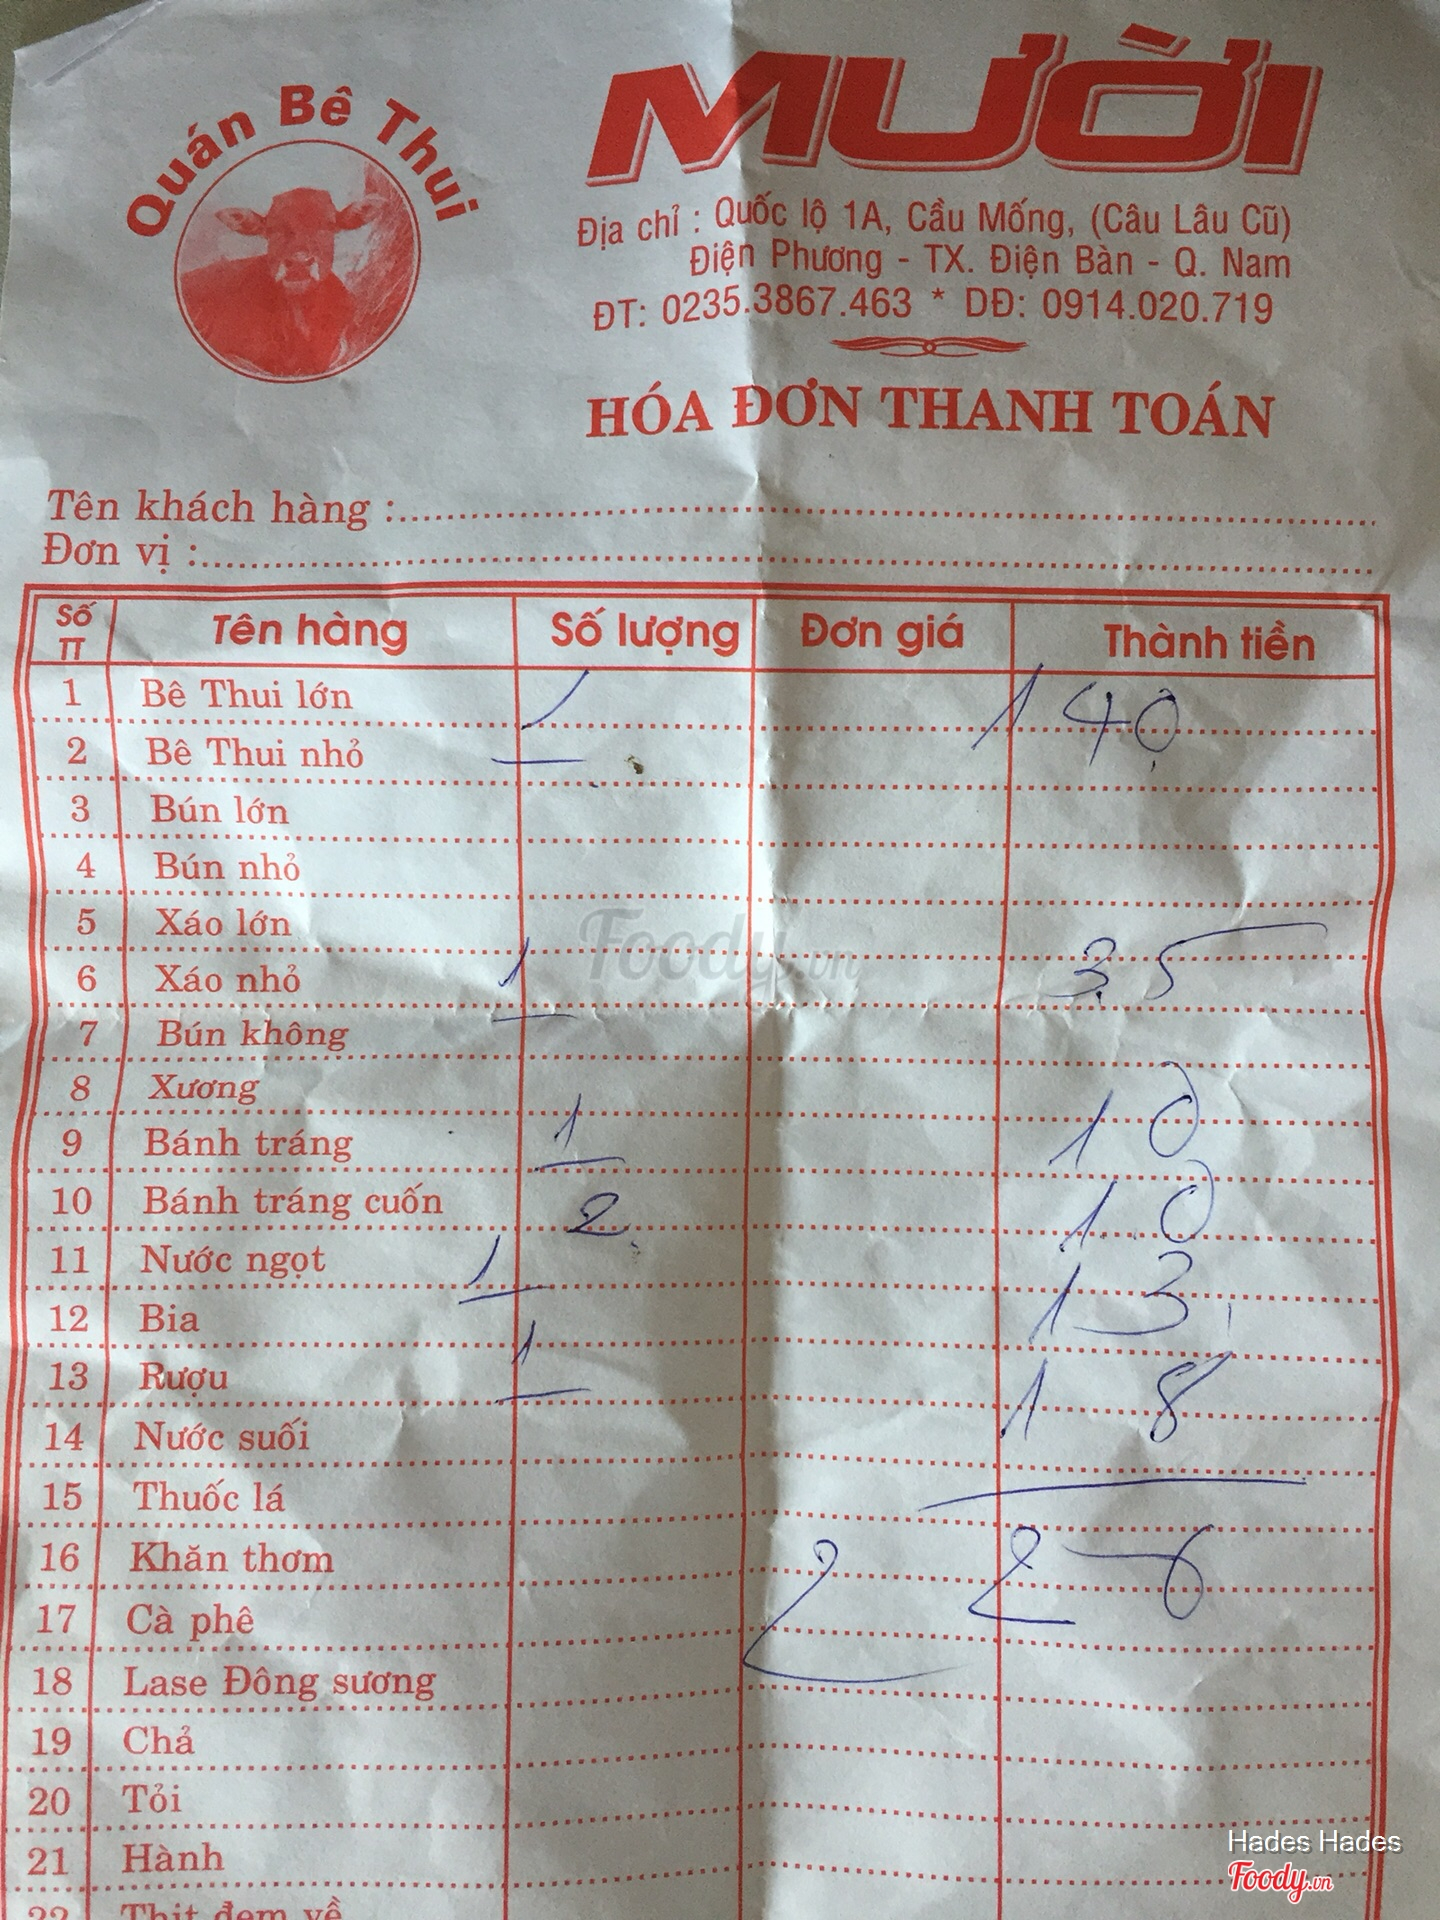 Quán Bê Thui
MƯỜI
Địa chỉ : Quốc lộ 1A, Cầu Mống, (Câu Lâu Cũ)
Điện Phương - TX. Điện Bàn - Q. Nam
ĐT: 0235.3867.463 * DĐ: 0914.020.719
HÓA ĐƠN THANH TOÁN
Tên khách hàng :
Đơn vị :
Số TT Tên hàng Số lượng Đơn giá Thành tiền
1 Bê Thui lớn 1 140
2 Bê Thui nhỏ
3 Bún lớn
4 Bún nhỏ
5 Xáo lớn
6 Xáo nhỏ 1 35
7 Bún không
8 Xương
9 Bánh tráng 1 10
10 Bánh tráng cuốn 2 10
11 Nước ngọt 1 13
12 Bia
13 Rượu 1 18
14 Nước suối
15 Thuốc lá
16 Khăn thơm 226
17 Cà phê
18 Lase Đông sương
19 Chả
20 Tỏi
21 Hành
22 Thịt đem về
Foody.vn
Hades Hades
Foody.vn